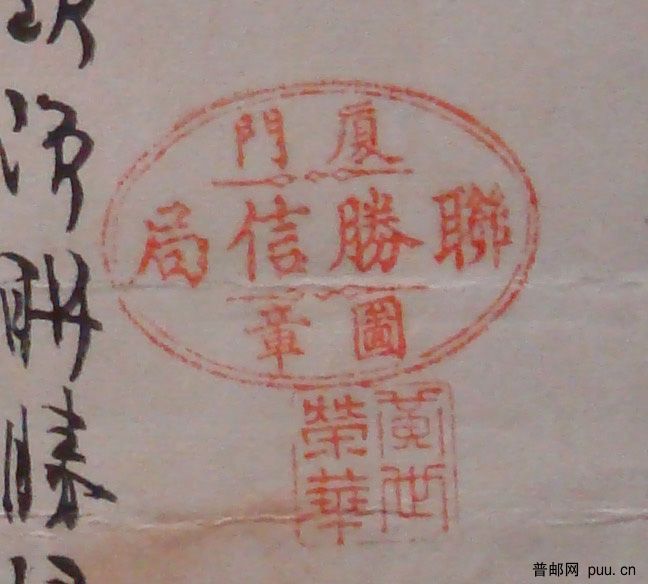 廈門
聯勝信局
圖章
黃世
榮華
聯勝
普邮网 puu.cn